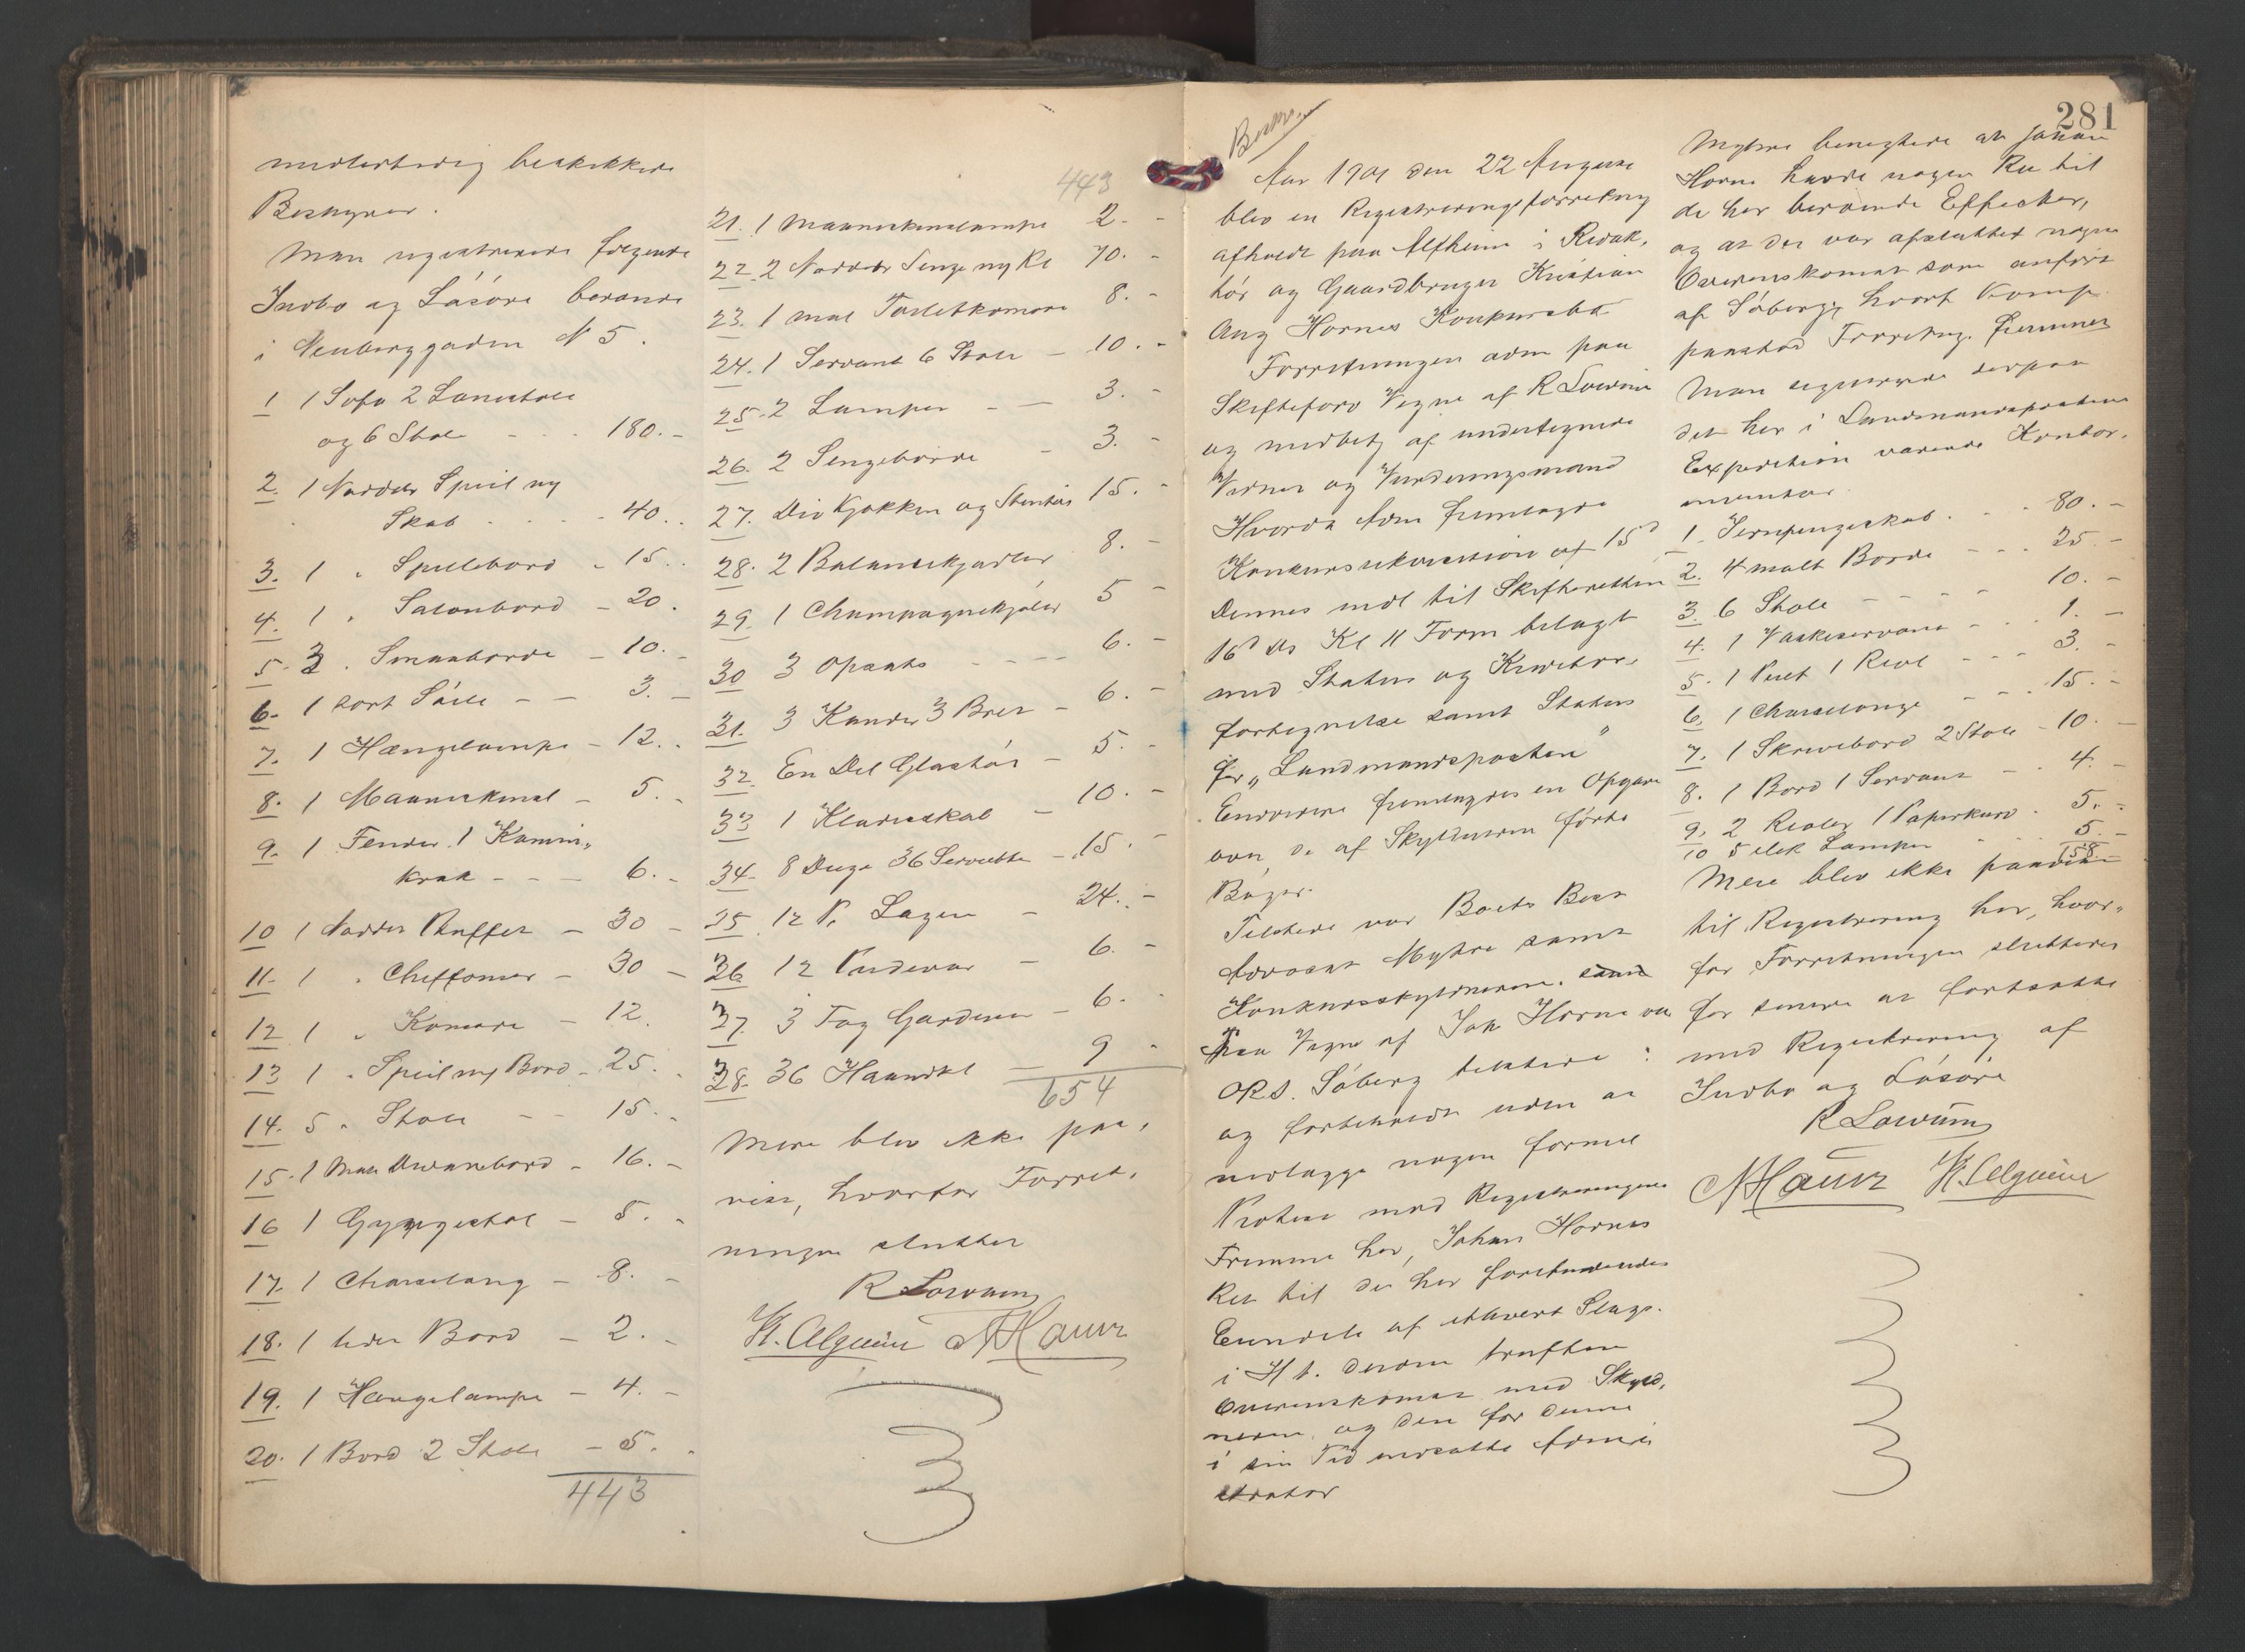 midlertidig beskikkede
Bestyrer.
Man registrerede følgende
Indbo og Løsøre beroende
i Neuberggaden N 5.
1 1 Sofa 2 Lænestole
og 6 Stole - - - 180. -
2. 1 Nødder Speil m/
Skab - - - - 40. -
3. 1 " Spillebord - 15. -
4. 1 " Salonbord - 20.
5. 3 " Smaaborde - 10. -
6. 1 sort Søile - - 3. -
7. 1 Hængelampe - 12. -
8. 1 Maaneskinsl - 5. -
9. 1 Fender 1 Kamin-
krak - - - 6. -
10 1 Nødder Buffet - 30 -
11. 1 " Cheffonier - 30 -
12 1 " Komode - 12.
13 1 " Speil m/ Bord - 25. -
14. 5 " Stole - - 15. -
15. 1 Mah Divanbord - 16. -
16 1 Gyngestol - 5. -
17. 1 Chaiselong - 8. -
18. 1 lidet Bord - 2. -
19. 1 Hængelampe - 4. -
20. 1 Bord 2 Stole - 5. -
443
443
21. 1 Maaneskinslampe 2. -
22. 2 Nødder Senge m/ Kl 70. -
23. 1 mal Toiletkomode 8. -
24. 1 Servant 6 Stole - 10. -
25. 2 Lamper - - 3. -
26. 2 Sengeborde - 3. -
27. Div Kjøkken og Stentøi 15. -
28. 2 Balancekjedler 8. -
29. 1 Champagnekjøler 5 -
30 3 Opsats - - - - 6. -
31. 3 Kander 3 Bret - 6. -
32. En Del Glastøi - 5. -
33 1 Klædeskab - 10. -
34. 8 Duge 36 Servietter - 15. -
35 12 P. Lagen - 24. -
36 12 Pudevar - 6. -
37. 3 Fag Gardiner - 6. -
38. 36 Haandkl - 9 -
654
Mere blev ikke paa-
vist, hvorfor Forret-
ningen sluttet
R Lowum
N Haur
281
Aar 1901 den 22 August
blev en Registreringsforretning
afholdt paa Alfheim i Redak-
tør og Gaardbruger Kristian
Aug Hornes Konkursbo
Forretningen adm paa
Skifteforv Vegne af R Lowum
og medbetj af undertegnede
Vidner og Vurderingsmænd
Hvorda Adm fremlagde
Konkursdekoration af 15d
Dennes indl til Skifteretten
16d ds Kl 11 Form belagt
med Status og Kreditor-
fortegnelse samt Status
for "Landmandsposten"
Endvidere fremlagdes en Opgave
over de af Skyldneren førte
Bøger.
Tilstede var Boets Best
Advokat Myhre samt
Konkursskyldneren.
Paa Vegne af Joh Horne var
ORS. Søberg tilstede
og forbeholdt uden at
nedlægge nogen formel
Protest mod Registreringens
Fremme her, Johan Hornes
Ret til de her forefindendes
Eiendele af ethvert Slags
i H t. derom truffen
Overenskomst med Skyld-
neren, og den for denne
i sin Tid indsatte Admini
strator
Myhre benegtede at Johan
Horne havde nogen Ret til
de her beroende Effecter,
og at der var afsluttet nogen
Overenskomst som anført
af Søberg, hvorf Komp
paastod Forretng. fremmet
Man registrerede derpaa
det her i Landmandspostens
Expedition værende Kontor-
inventar.
1. Jernpengeskab. - - 80. -
2. 4 malt Borde - - - 25 -
3. 6 Stole - - - - 10. -
4. 1 Vaskeservant - - - 1. -
5. 1 Pult 1 Reol - - - 3. -
6. 1 Chaiselonge - - - 15. -
7. 1 Skrivebord 2 Stole - 10. -
8. 1 Bord 1 Servant - - 4. -
9. 2 Reoler 1 Papirkurv - 5. -
10 5 elek Lamper - - - 5. -
158
Mere blev ikke paavist
til Registrering her, hvor-
for Forretningen sluttedes
for senere at fortsætte
med Registrering af
Indbo og Løsøre
R Lowum
N Haur